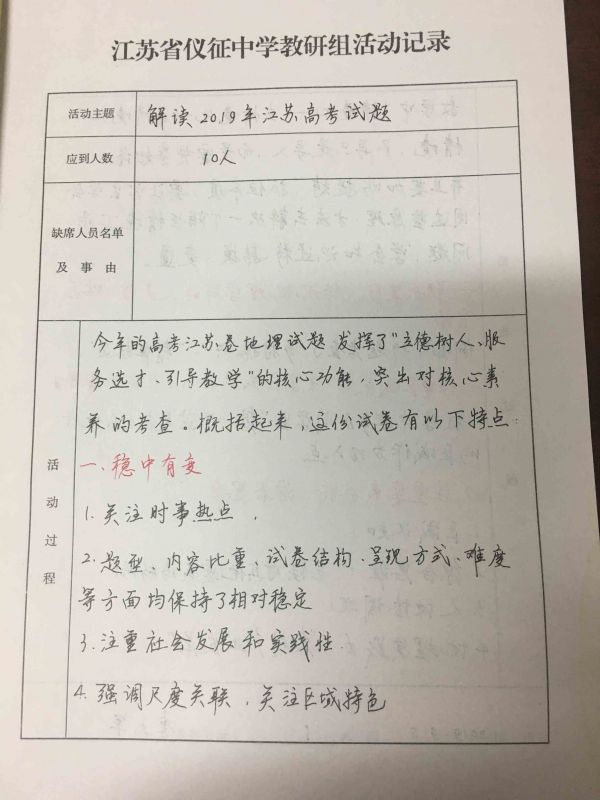 江苏省仪征中学教研组活动记录
活动主题 解读2019年江苏高考试题
应到人数 10人
缺席人员名单
及事由
今年的高考江苏卷地理试题 发挥了"立德树人、服
务选才、引导教学"的核心功能，突出对核心素
养的考查。概括起来，这份试卷有以下特点：
一、稳中有变
活动过程
1. 关注时事热点．
2. 题型、内容比重、试卷结构、呈现方式、难度
等方面均保持了相对稳定
3. 注重社会发展和实践性．
4. 强调尺度关联，关注区域特色